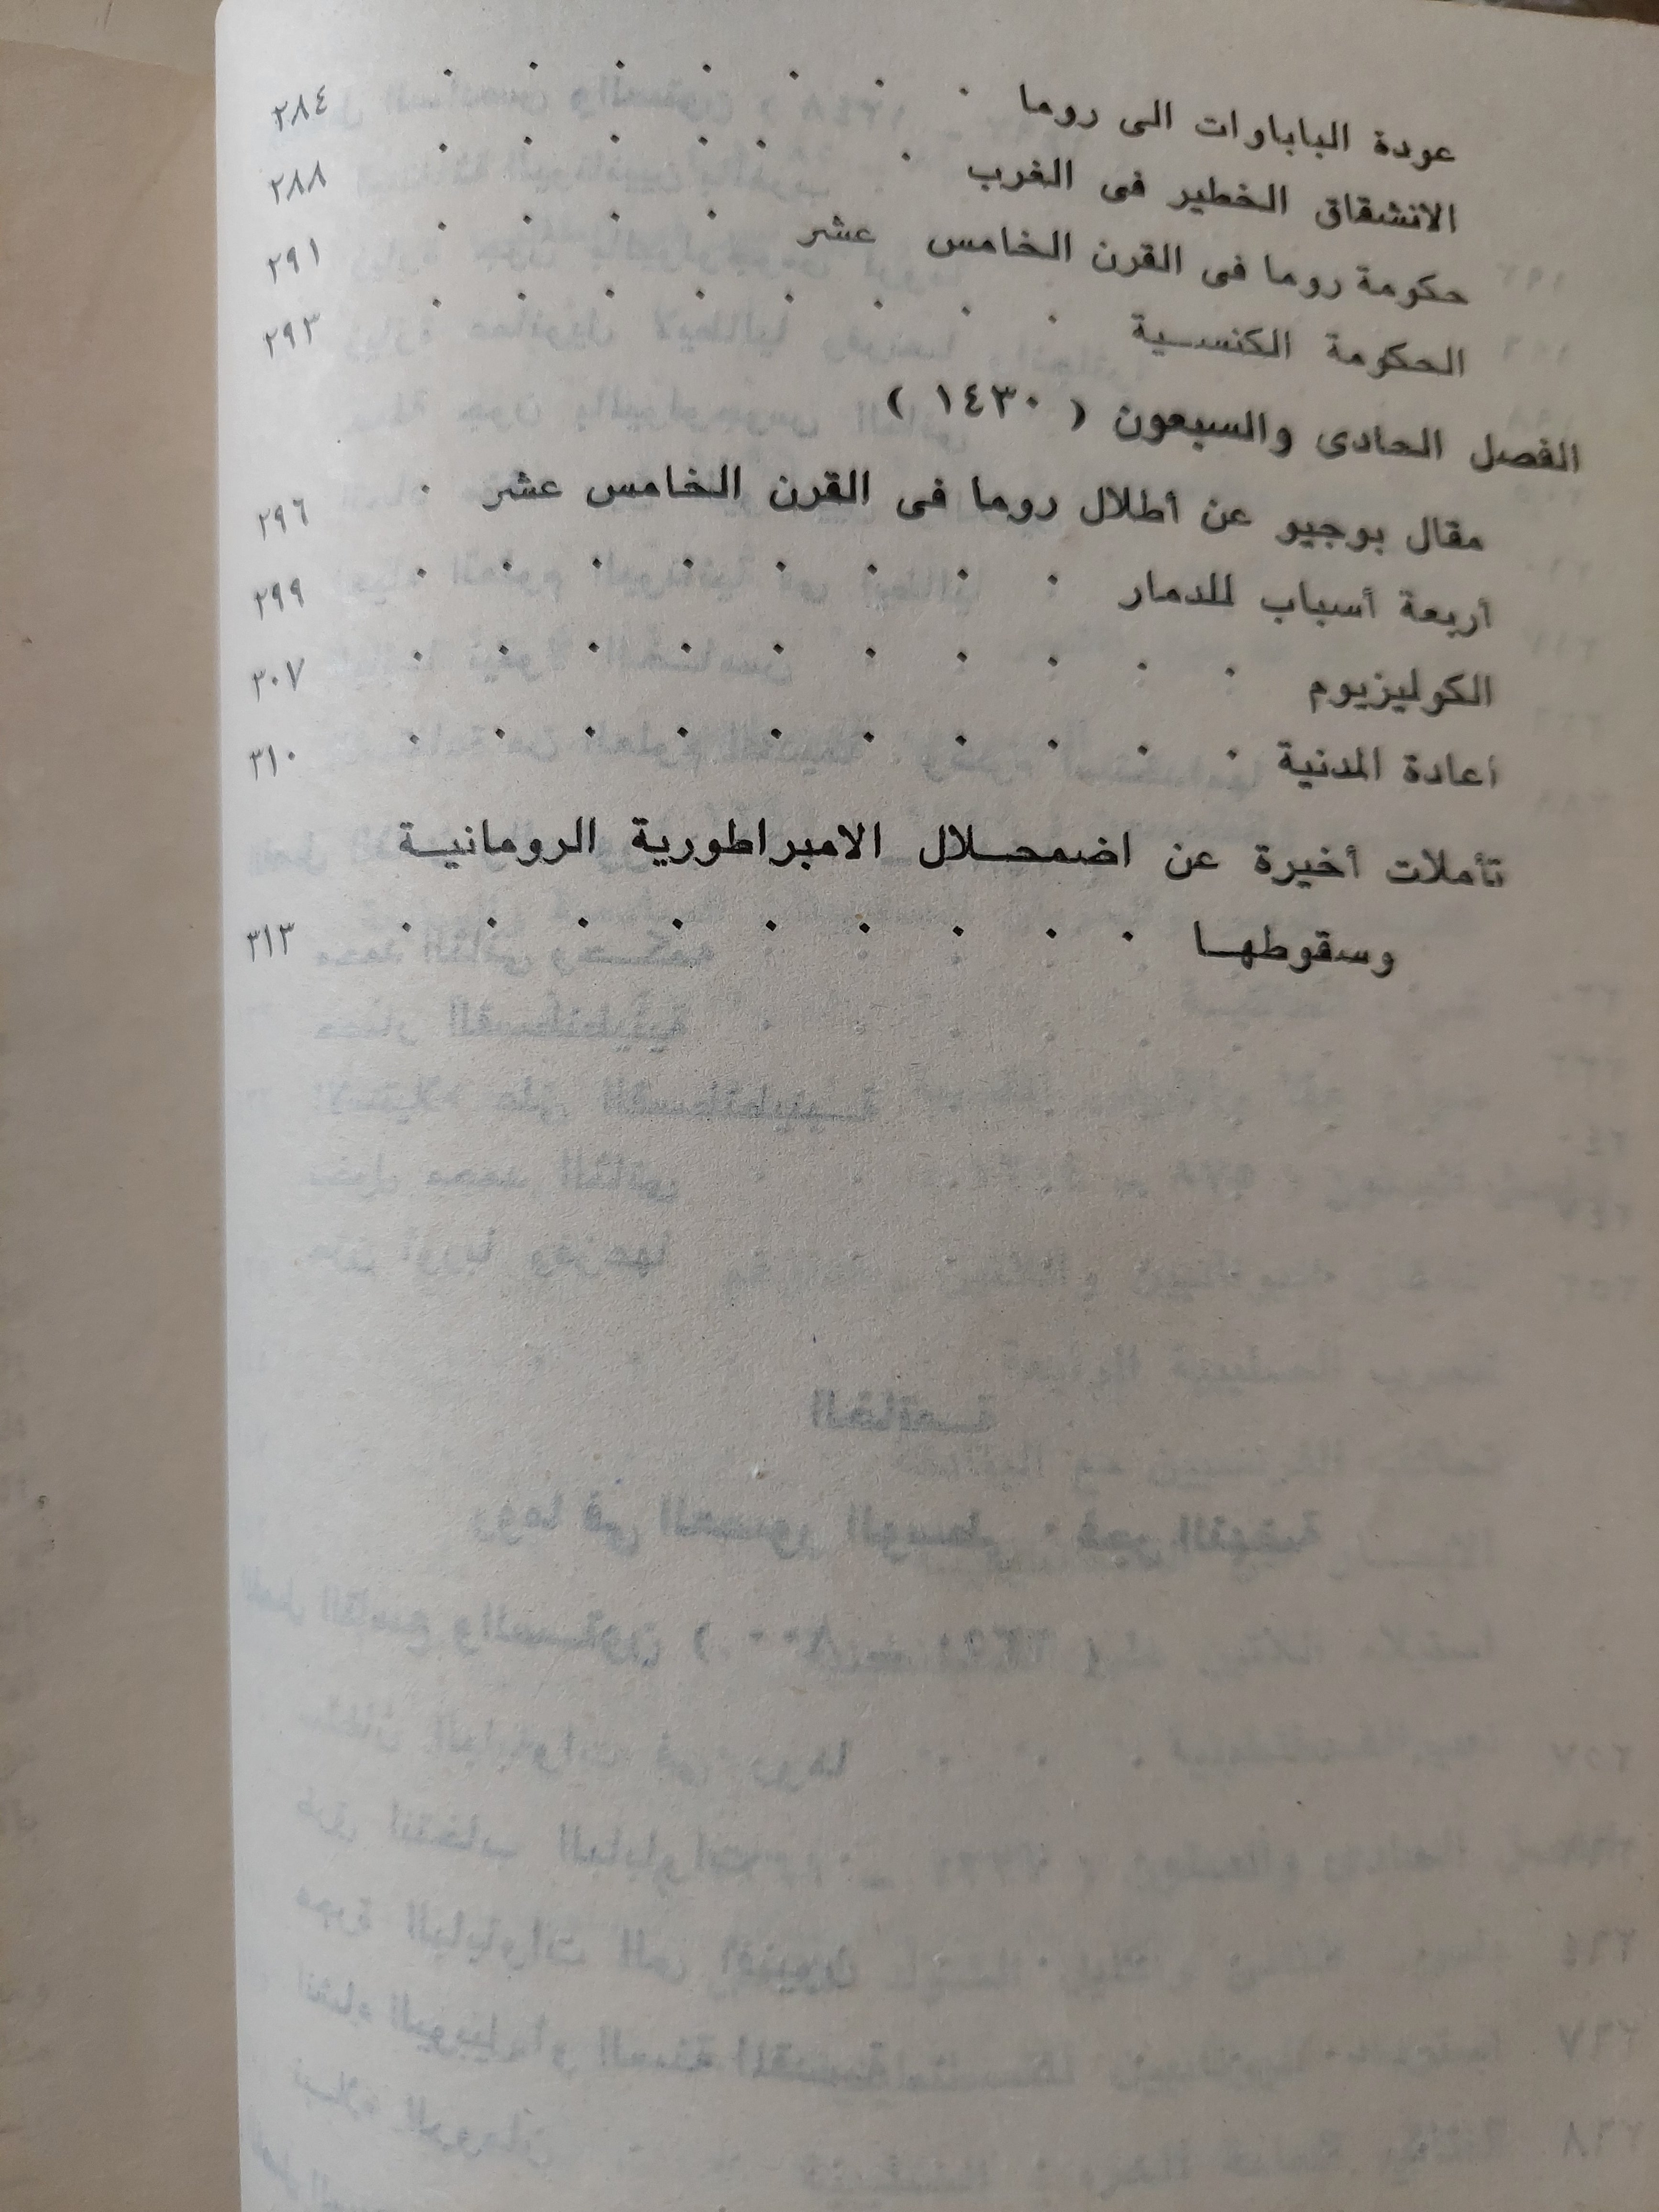 عودة الباباوات الى روما ٢٨٤
الانشقاق الخطير فى الغرب ٢٨٨
حكومة روما فى القرن الخامس عشر ٢٩١
الحكومة الكنسية ٢٩٣
الفصل الحادى والسبعون ( ١٤٣٠ )
مقال بوجيو عن أطلال روما فى القرن الخامس عشر ٢٩٦
أربعة أسباب للدمار ٢٩٩
الكوليزيوم ٣٠٧
اعادة المدنية ٣١٠
تأملات أخيرة عن اضمحلال الامبراطورية الرومانية
وسقوطها ٣١٣